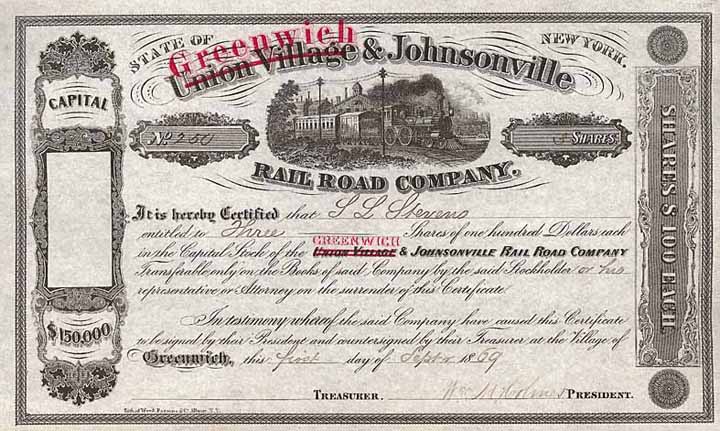 STATE OF NEW YORK.
Greenwich
Union Village & Johnsonville
CAPITAL
No. 250
3 SHARES
RAIL ROAD COMPANY.
SHARES $100 EACH
It is hereby Certified that S L Stevens
entitled to Three Shares of one hundred Dollars each
GREENWICH
in the Capital Stock of the UNION VILLAGE & JOHNSONVILLE RAIL ROAD COMPANY
Transferable only on the Books of said Company by the said Stockholder or his
representative or Attorney on the surrender of this Certificate.
$150,000
In testimony whereof the said Company have caused this Certificate
to be signed by their President and countersigned by their Treasurer at the Village of
Greenwich, this first day of Septr 1869
TREASURER. Wm M Holmes PRESIDENT.
Lith. of Weed, Parsons & Co. Albany, N.Y.